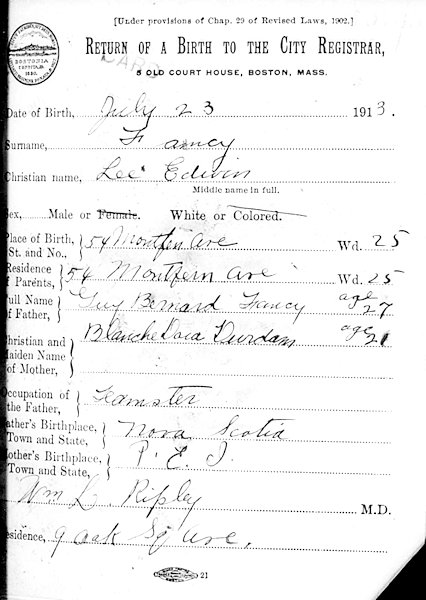 [Under provisions of Chap. 29 of Revised Laws, 1902.]
RETURN OF A BIRTH TO THE CITY REGISTRAR,
CARD
BOSTONIA
5 OLD COURT HOUSE, BOSTON, MASS.
Date of Birth, July 23 1913.
Surname, Fancy
Christian name, Lee Edwin
Middle name in full.
Sex, Male or Female. White or Colored.
Place of Birth, St. and No., 54 Montfern Ave Wd. 25
Residence of Parents, 54 Montfern Ave Wd. 25
Full Name of Father, Guy Bernard Fancy age 27
Christian and Maiden Name of Mother, Blanche age 21
Occupation of the Father, Teamster
Father's Birthplace, Town and State, Nova Scotia
Mother's Birthplace, Town and State, P. E. I.
Wm L. Ripley M.D.
Residence, 9 Oak Square.
21